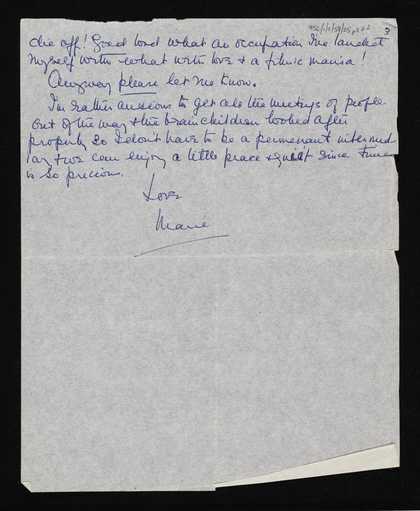 die off! Good Lord what an occupation I've landed
myself with - what with love & a filmic mania!
Anyway please let me know.
I'm rather anxious to get all the meetings of people
out of the way & the brainchildren looked after
properly so I don't have to be a permanent intermed
ary & we can enjoy a little peace & quiet since time
is so precious.
Love
Marie